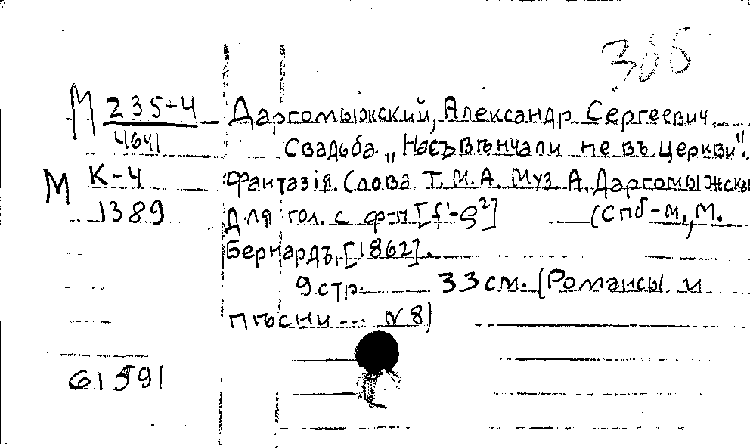 305
М 235-4 Даргомыжский, Александр Сергеевич.
4641 Свадьба „Насъ вѣнчали не въ церкви".
М К-4 Фантазія. Слова Т.М.А. Муз А. Даргомыжска
1389 Для гол. с ф-п [f¹-g²] (Спб-м., М.
Бернардъ, [1862].
9 стр. 33 см. (Романсы и
пѣсни ... N8)
61591